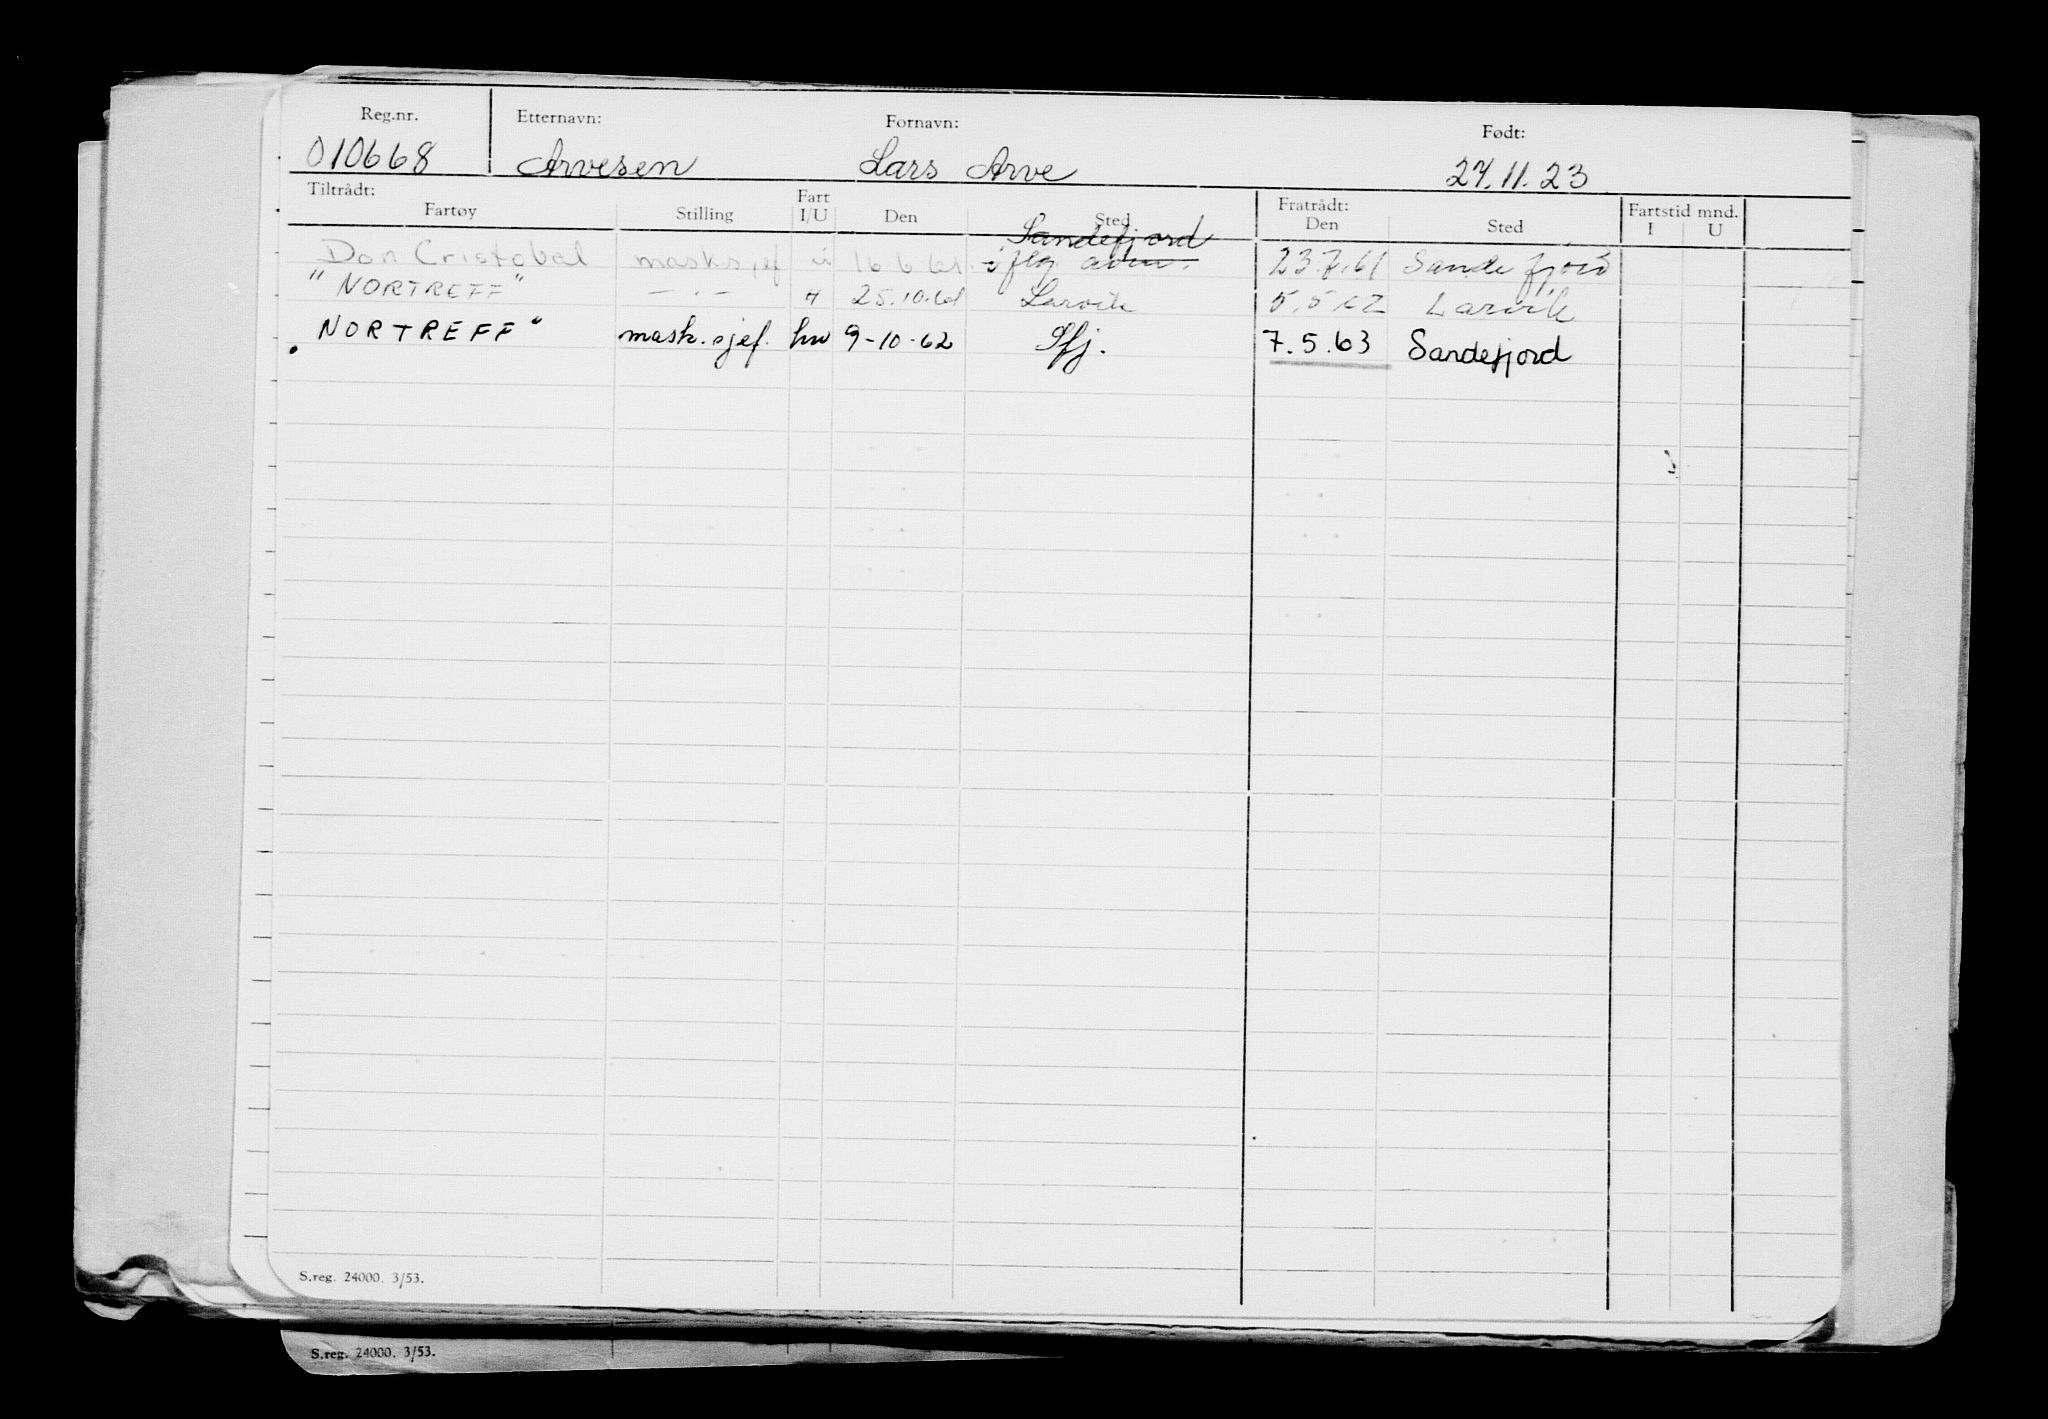 Reg.nr. Etternavn: Fornavn: Født:
010668 Arvesen Lars Arve 27.11.23
Tiltrådt: Fratrådt:
Fartøy Stilling Fart I/U Den Sted Den Sted Fartstid mnd. I U
Sandefjord
Don Cristobal mask.sjef u 16.6.61. iflg. 23.7.61 Sandefjord
"NORTREFF" — . — " 25.10.61 Larvik 5.5.62 Larvik
NORTREFF" mask.sjef. hv 9-10-62 Sfj. 7.5.63 Sandefjord
S.reg. 24000. 3/53.
S.reg. 24000. 3/53.